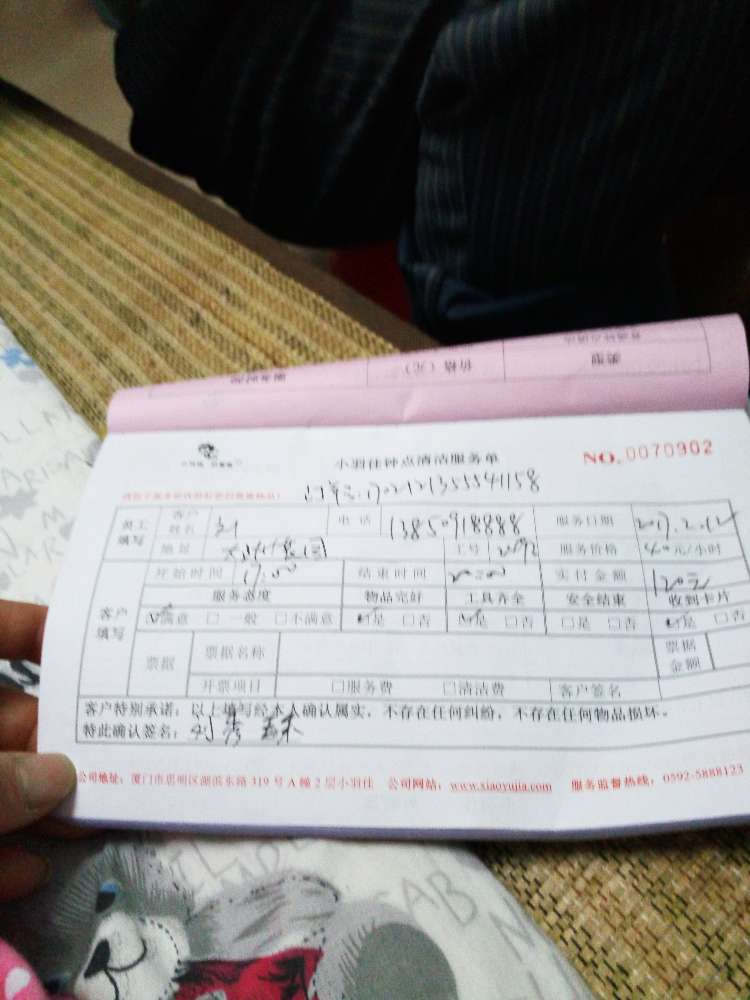 类型
价格（元）
小羽佳钟点清洁服务单
NO.0070902
员工填写
客户姓名 刘
电话 13850918888
服务日期 2017.2.12
地址
工号
服务价格 40元/小时
客户填写
开始时间 17:00
结束时间 20:00
实付金额 120元
服务态度 物品完好 工具齐全 安全结束 收到卡片
☑满意 □一般 □不满意 ☑是 □否 ☑是 □否 □是 □否 ☑是 □否
票据
票据名称
票据金额
开票项目 □服务费 □清洁费 客户签名
客户特别承诺：以上填写经本人确认属实，不存在任何纠纷，不存在任何物品损坏。
特此确认签名：刘秀
公司地址：厦门市思明区湖滨东路 319 号 A 幢 2 层小羽佳 公司网站：www.xiaoyujia.com 服务监督热线：0592-5888123